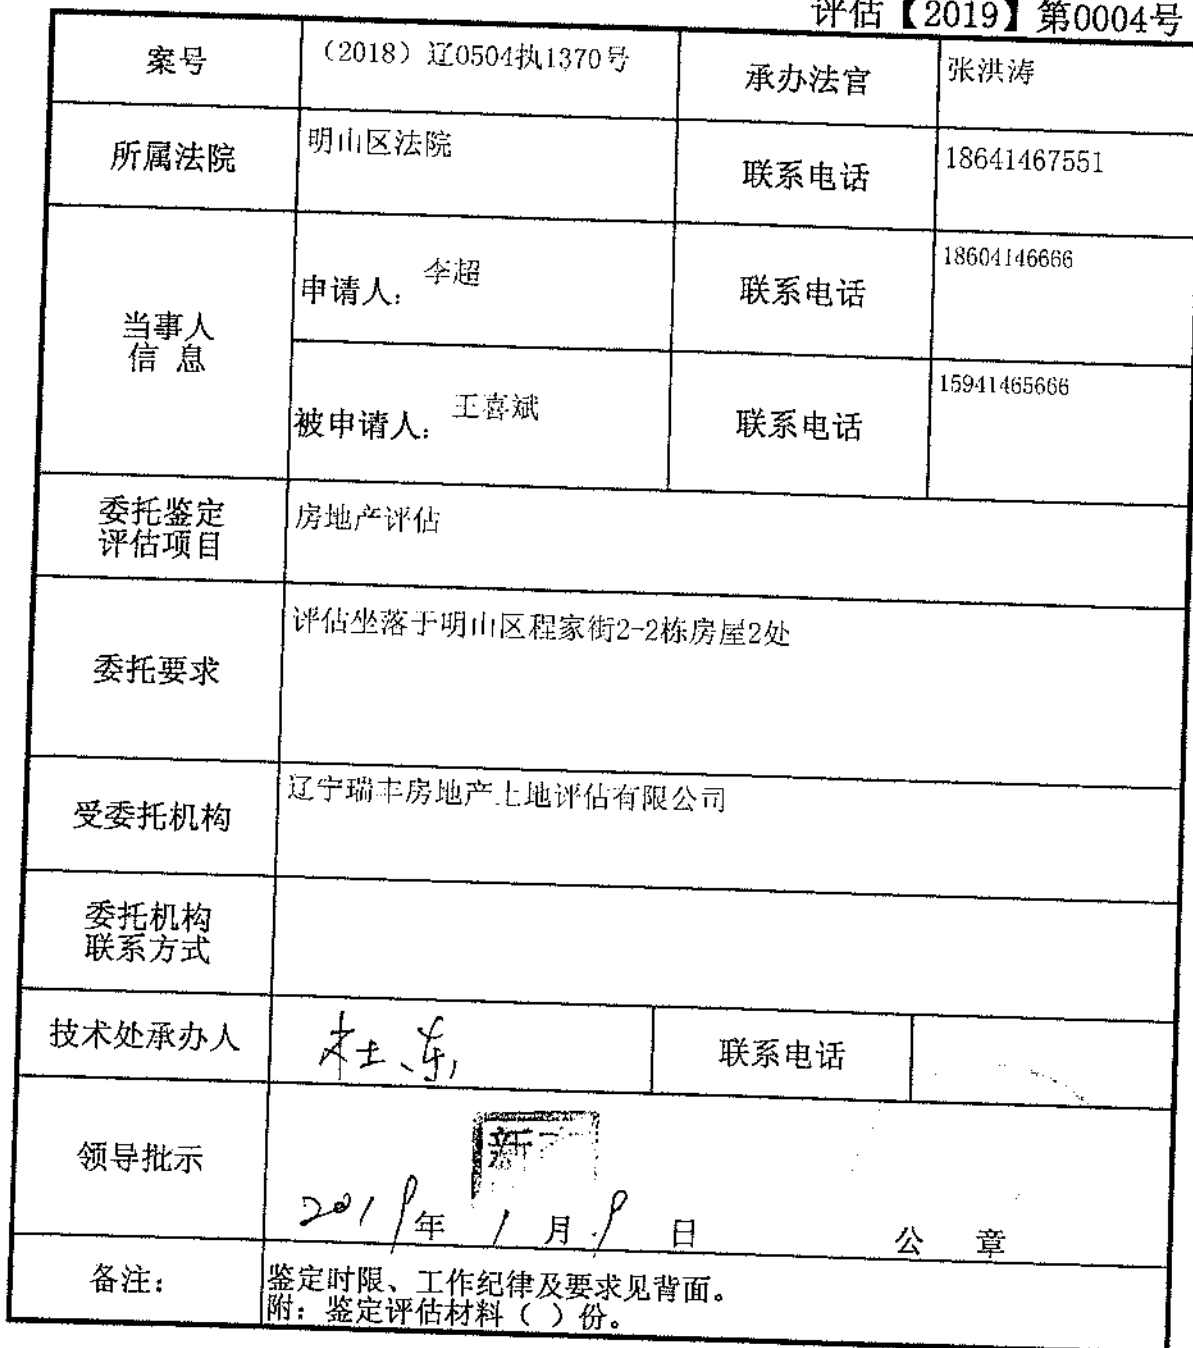 评估【2019】第0004号
案号 （2018）辽0504执1370号 承办法官 张洪涛
所属法院 明山区法院 联系电话 18641467551
当事人
信 息
申请人： 李超 联系电话 18604146666
被申请人： 王喜斌 联系电话 15941465666
委托鉴定
评估项目
房地产评估
委托要求 评估坐落于明山区程家街2-2栋房屋2处
受委托机构 辽宁瑞丰房地产土地评估有限公司
委托机构
联系方式
技术处承办人 杜东 联系电话
领导批示
新
2019年 1月9日 公 章
备注： 鉴定时限、工作纪律及要求见背面。
附：鉴定评估材料（ ）份。